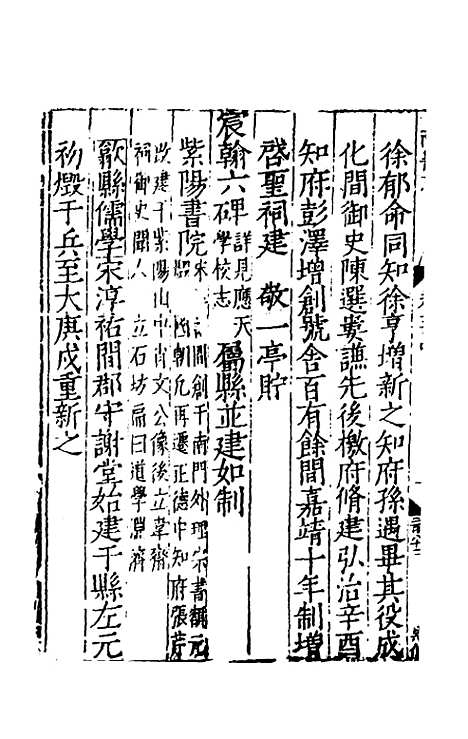 徐郁命同知徐亨增新之知府孫遇畢其役成
化間御史陳選婁謙先後檄府脩建弘治辛酉
知府彭澤增創號舍百有餘間嘉靖十年制增
啓聖祠建 敬一亭貯
宸翰六碑詳見應天學校志 屬縣並建如制
紫陽書院宋 間創于南門外理宗書額元
國朝凡再遷正德中知府張芹
改建于紫陽山中肖文公像後立韋齋
祠御史聞人 立石坊扁曰道學淵
歙縣儒學宋淳祐間郡守謝堂始建于縣左元
初燬于兵至大庚戌重新之